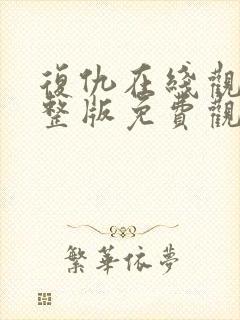 復仇在线觀
整版免費觀
繁華依夢